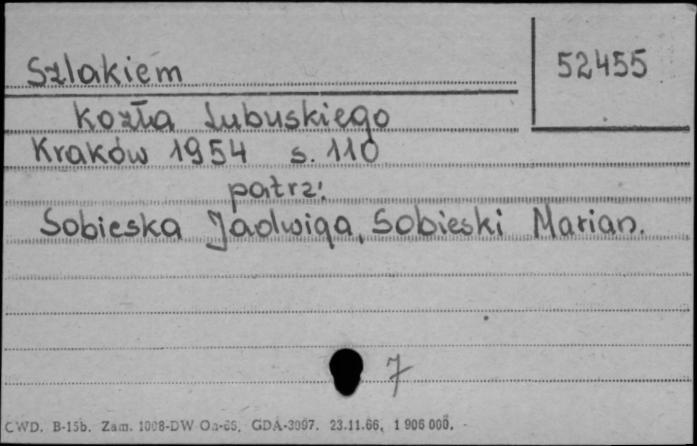 Szlakiem
52455
Kozła Lubuskiego
Kraków 1954 s. 110
patrz:
Sobieska Jadwiga, Sobieski Marian.
7
CWD. B-15b. Zam. 1008-DW Oa-66, GDA-3097. 23.11.66, 1 906 000.